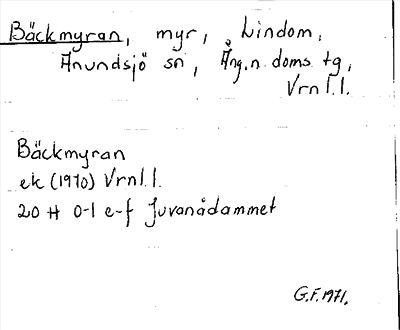 Bäckmyran, myr, Lindom,
Anundsjö sn, Ång.n doms tg,
Vrnl.l.
Bäckmyran
ek (1970) Vrnl.l.
20 H 0-1 e-f Juvanådammet
G.F. 1971.